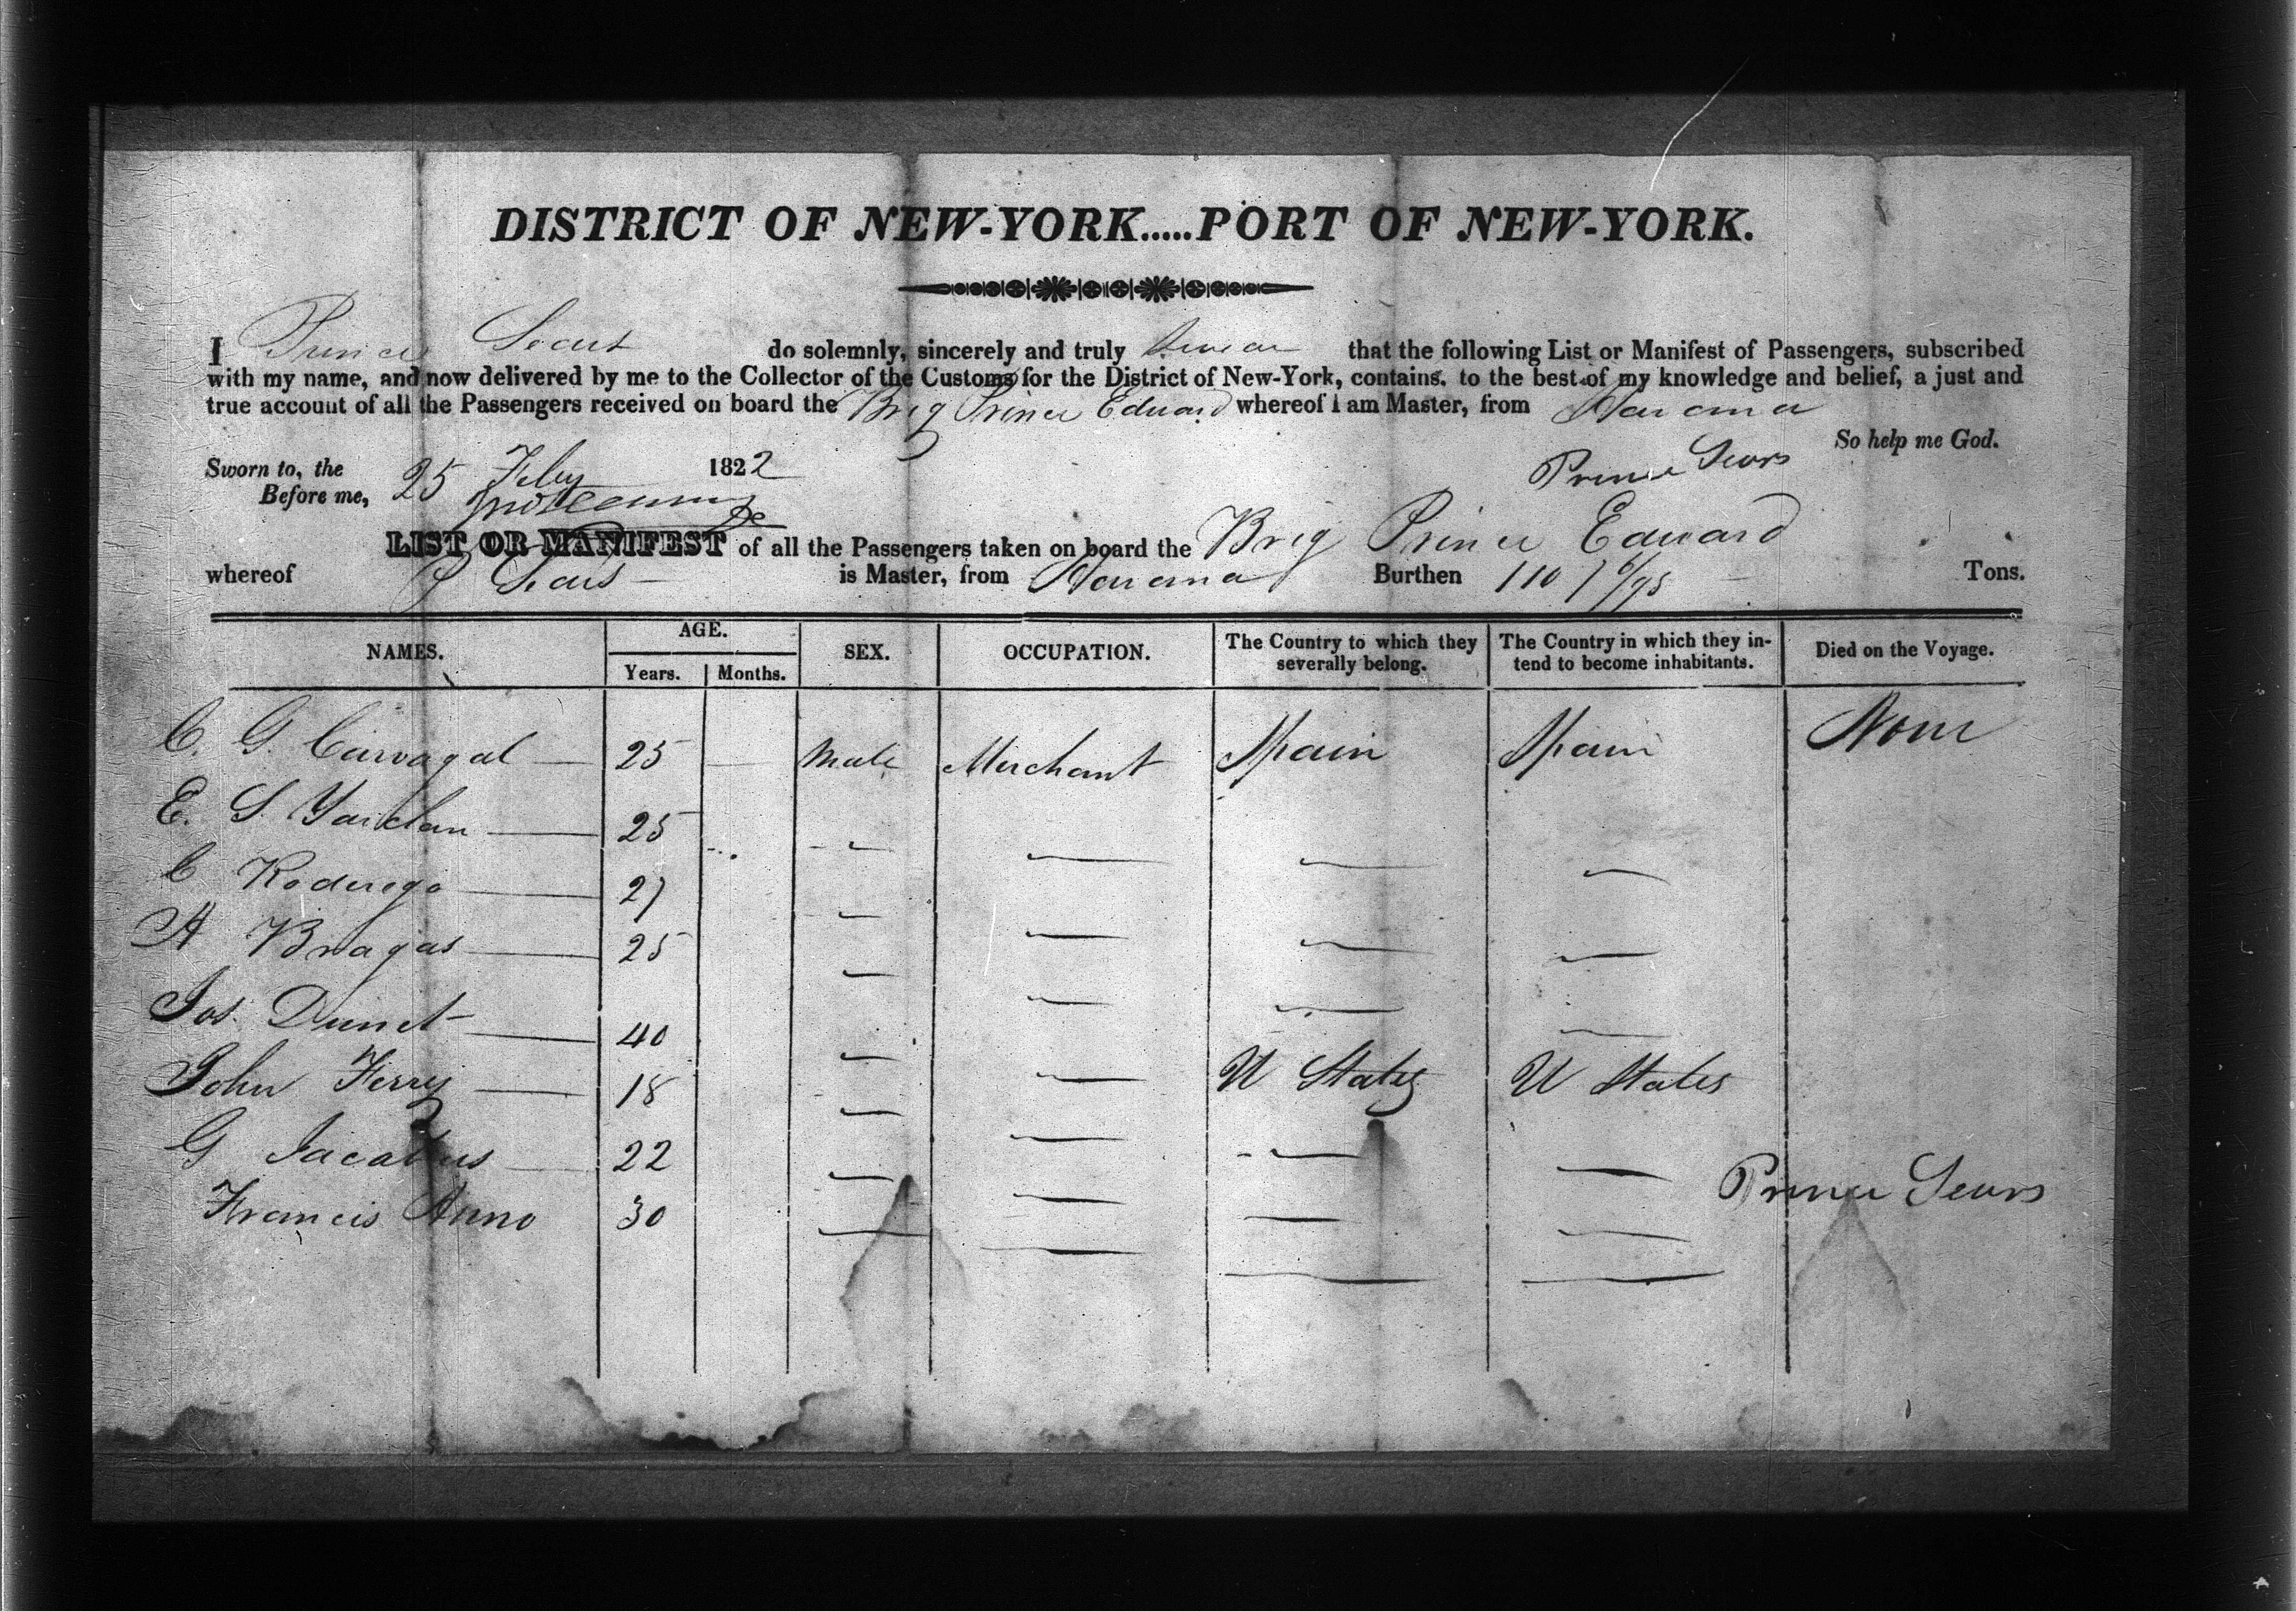 DISTRICT OF NEW-YORK.....PORT OF NEW-YORK.
I Prince Sears do solemnly, sincerely and truly Swear that the following List or Manifest of Passengers, subscribed
with my name, and now delivered by me to the Collector of the Customs for the District of New-York, contains, to the best of my knowledge and belief, a just and
true account of all the Passengers received on board the Brig Prince Edward whereof I am Master, from Havana
So help me God.
Sworn to, the 25 Feby 1822 Prince Sears
Before me,
LIST OR MANIFEST of all the Passengers taken on board the Brig Prince Edward
whereof P Sears is Master, from Havana Burthen 110 76/95 Tons.
NAMES. AGE. SEX. OCCUPATION. The Country to which they severally belong. The Country in which they intend to become inhabitants. Died on the Voyage.
Years. Months.
C. G. Carvagal — 25 — Male Merchant Spain Spain None
E. S. — 25 — — — —
C Roderego — 27 — — — —
A Bragas — 25 — — — —
Jos. — 40 — — U States U States
John Ferry — 18 — — — —
G Jacabus — 22 — — — — Prince Sears
Francis Anno 30 — — — —